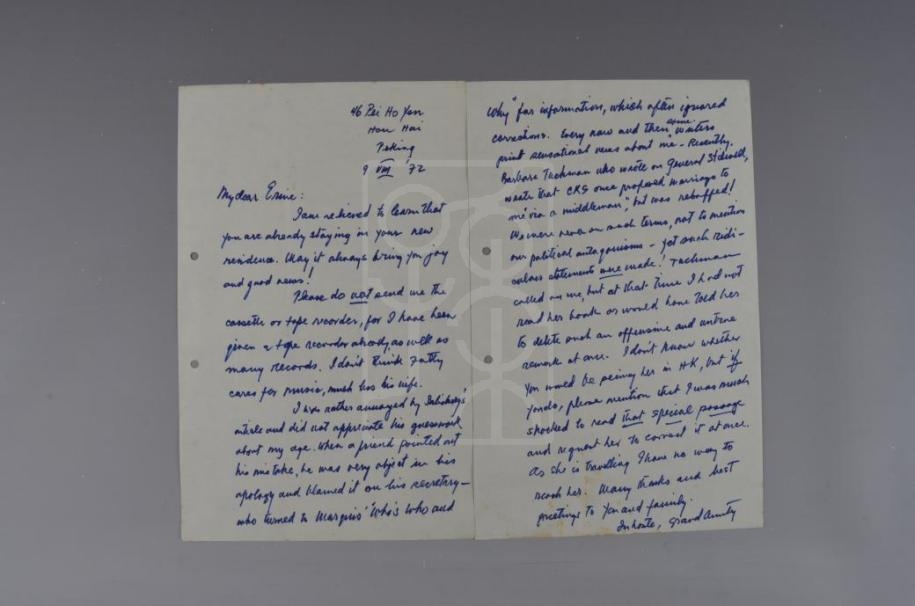 46 Pei Ho Yen
Hou Hai
Peking
9 VIII '72
My dear Ernie:
I am relieved to learn that
you are already staying in your new
residence. May it always bring you joy
and good news!
Please do not send me the
cassette or tape recorder, for I have been
given a tape recorder already, as well as
many records. I don't think
cares for music, much less his wife.
I was rather annoyed by
article and did not appreciate his guesswork
about my age. When a friend pointed out
his mistake, he was very abject in his
apology and blamed it on his secretary -
who turned to Marquis' "Who's Who and
Why" for information, which often ignored
corrections. Every now and then some writers
print sensational news about me - Recently,
Barbara Tuchman who wrote on General Stilwell,
wrote that CKS once proposed marriage to
me "via a middleman", but was rebuffed!
We were never on such terms, not to mention
our political antagonisms - yet such ridi-
culous statements are made! Tuchman
called on me, but at that time I had not
read her book or would have told her
to delete such an offensive and untrue
remark at once. I don't know whether
you would be seeing her in HK, but if
you do, please mention that I was much
shocked to read that special passage
and request her to correct it at once.
As she is travelling I have no way to
reach her. Many thanks and best
greetings to you and family.
In haste, Grand Aunty